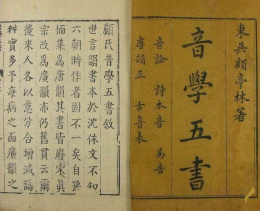 東吳顧亭林著
音學五書
音論 詩本音 易音
唐韻正 古音表
顧氏音學五書敘
世言韻書本於沈休文不知
六朝時作者固不一矣自孫
愐為唐韻其書皆廢宋真
宗改為廣韻亦仍舊貫云爾
後來人各以意分合增減論
實多予病之而廣韻之